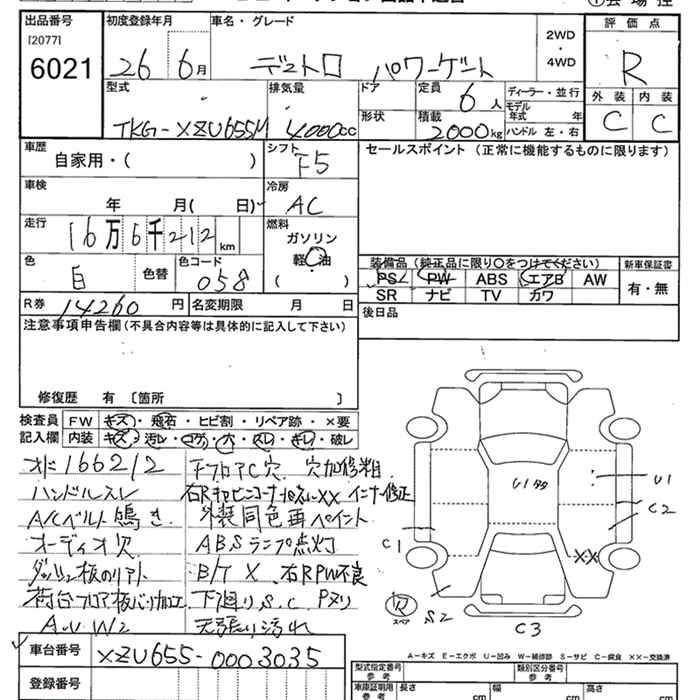 出品番号 初度登録年月 車名・グレード 評価点
[2077]
6021 26 6月 デュトロ パワーゲート 2WD・4WD R
型式 排気量 ドア 定員 6人 ディーラー・並行 外装 内装
TKG-XZU655M 4000cc 形状 積載 2000kg モデル年式 年 ハンドル 左・右 C C
車歴 自家用・( ) シフト F5 セールスポイント (正常に機能するものに限ります)
車検 年 月( 日) 冷房 AC
走行 16万6千212km 燃料 ガソリン 軽油 ( )
色 白 色替 色コード 058
装備品(純正品に限り○をつけてください) 新車保証書
PS PW ABS エアB AW 有・無
SR ナビ TV カワ
R券 14260円 名変期限 月 日 後日品
注意事項申告欄(不具合内容等は具体的に記入して下さい)
修復歴 有 [箇所 ]
検査員 FW キズ・飛石・ヒビ割・リペア跡・×要
記入欄 内装 キズ・汚レ・コゲ・穴・スレ・キレ・破レ
オド166212 FフロアC穴 穴加修粗
ハンドルスレ
A/Cベルト鳴き 外装同色再ペイント
オーディオ欠 ABSランプ点灯
B/T X 右RPW不良
下廻りS.C Pヌリ
A.U W2 天張り汚れ
U1多 U1
C2
C1
XX
スペア S2
C3
A-キズ E-エクボ U-凹み W-補修跡 S-サビ C-腐食 XX-交換済
車台番号 XZU655-0003035
登録番号
型式指定番号 参考 類別区分番号 参考
車庫証明用 参考 長さ cm 幅 cm 高さ cm